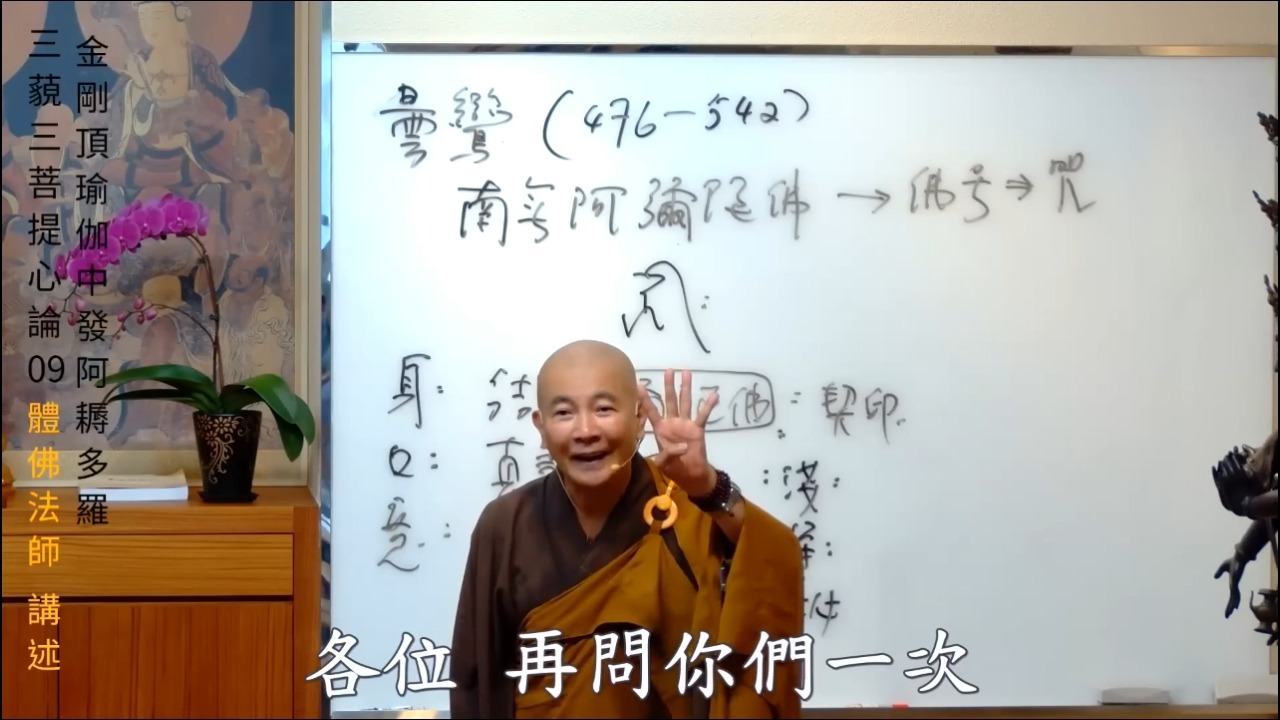 金剛頂瑜伽中發阿耨多羅
三藐三菩提心論09 體佛法師 講述
曇鸞 (476-542)
南無阿彌陀佛 → 佛号 ⇒ 咒
身: 結 佛 : 契印.
口: 真 : 淺:
意:
各位 再問你們一次